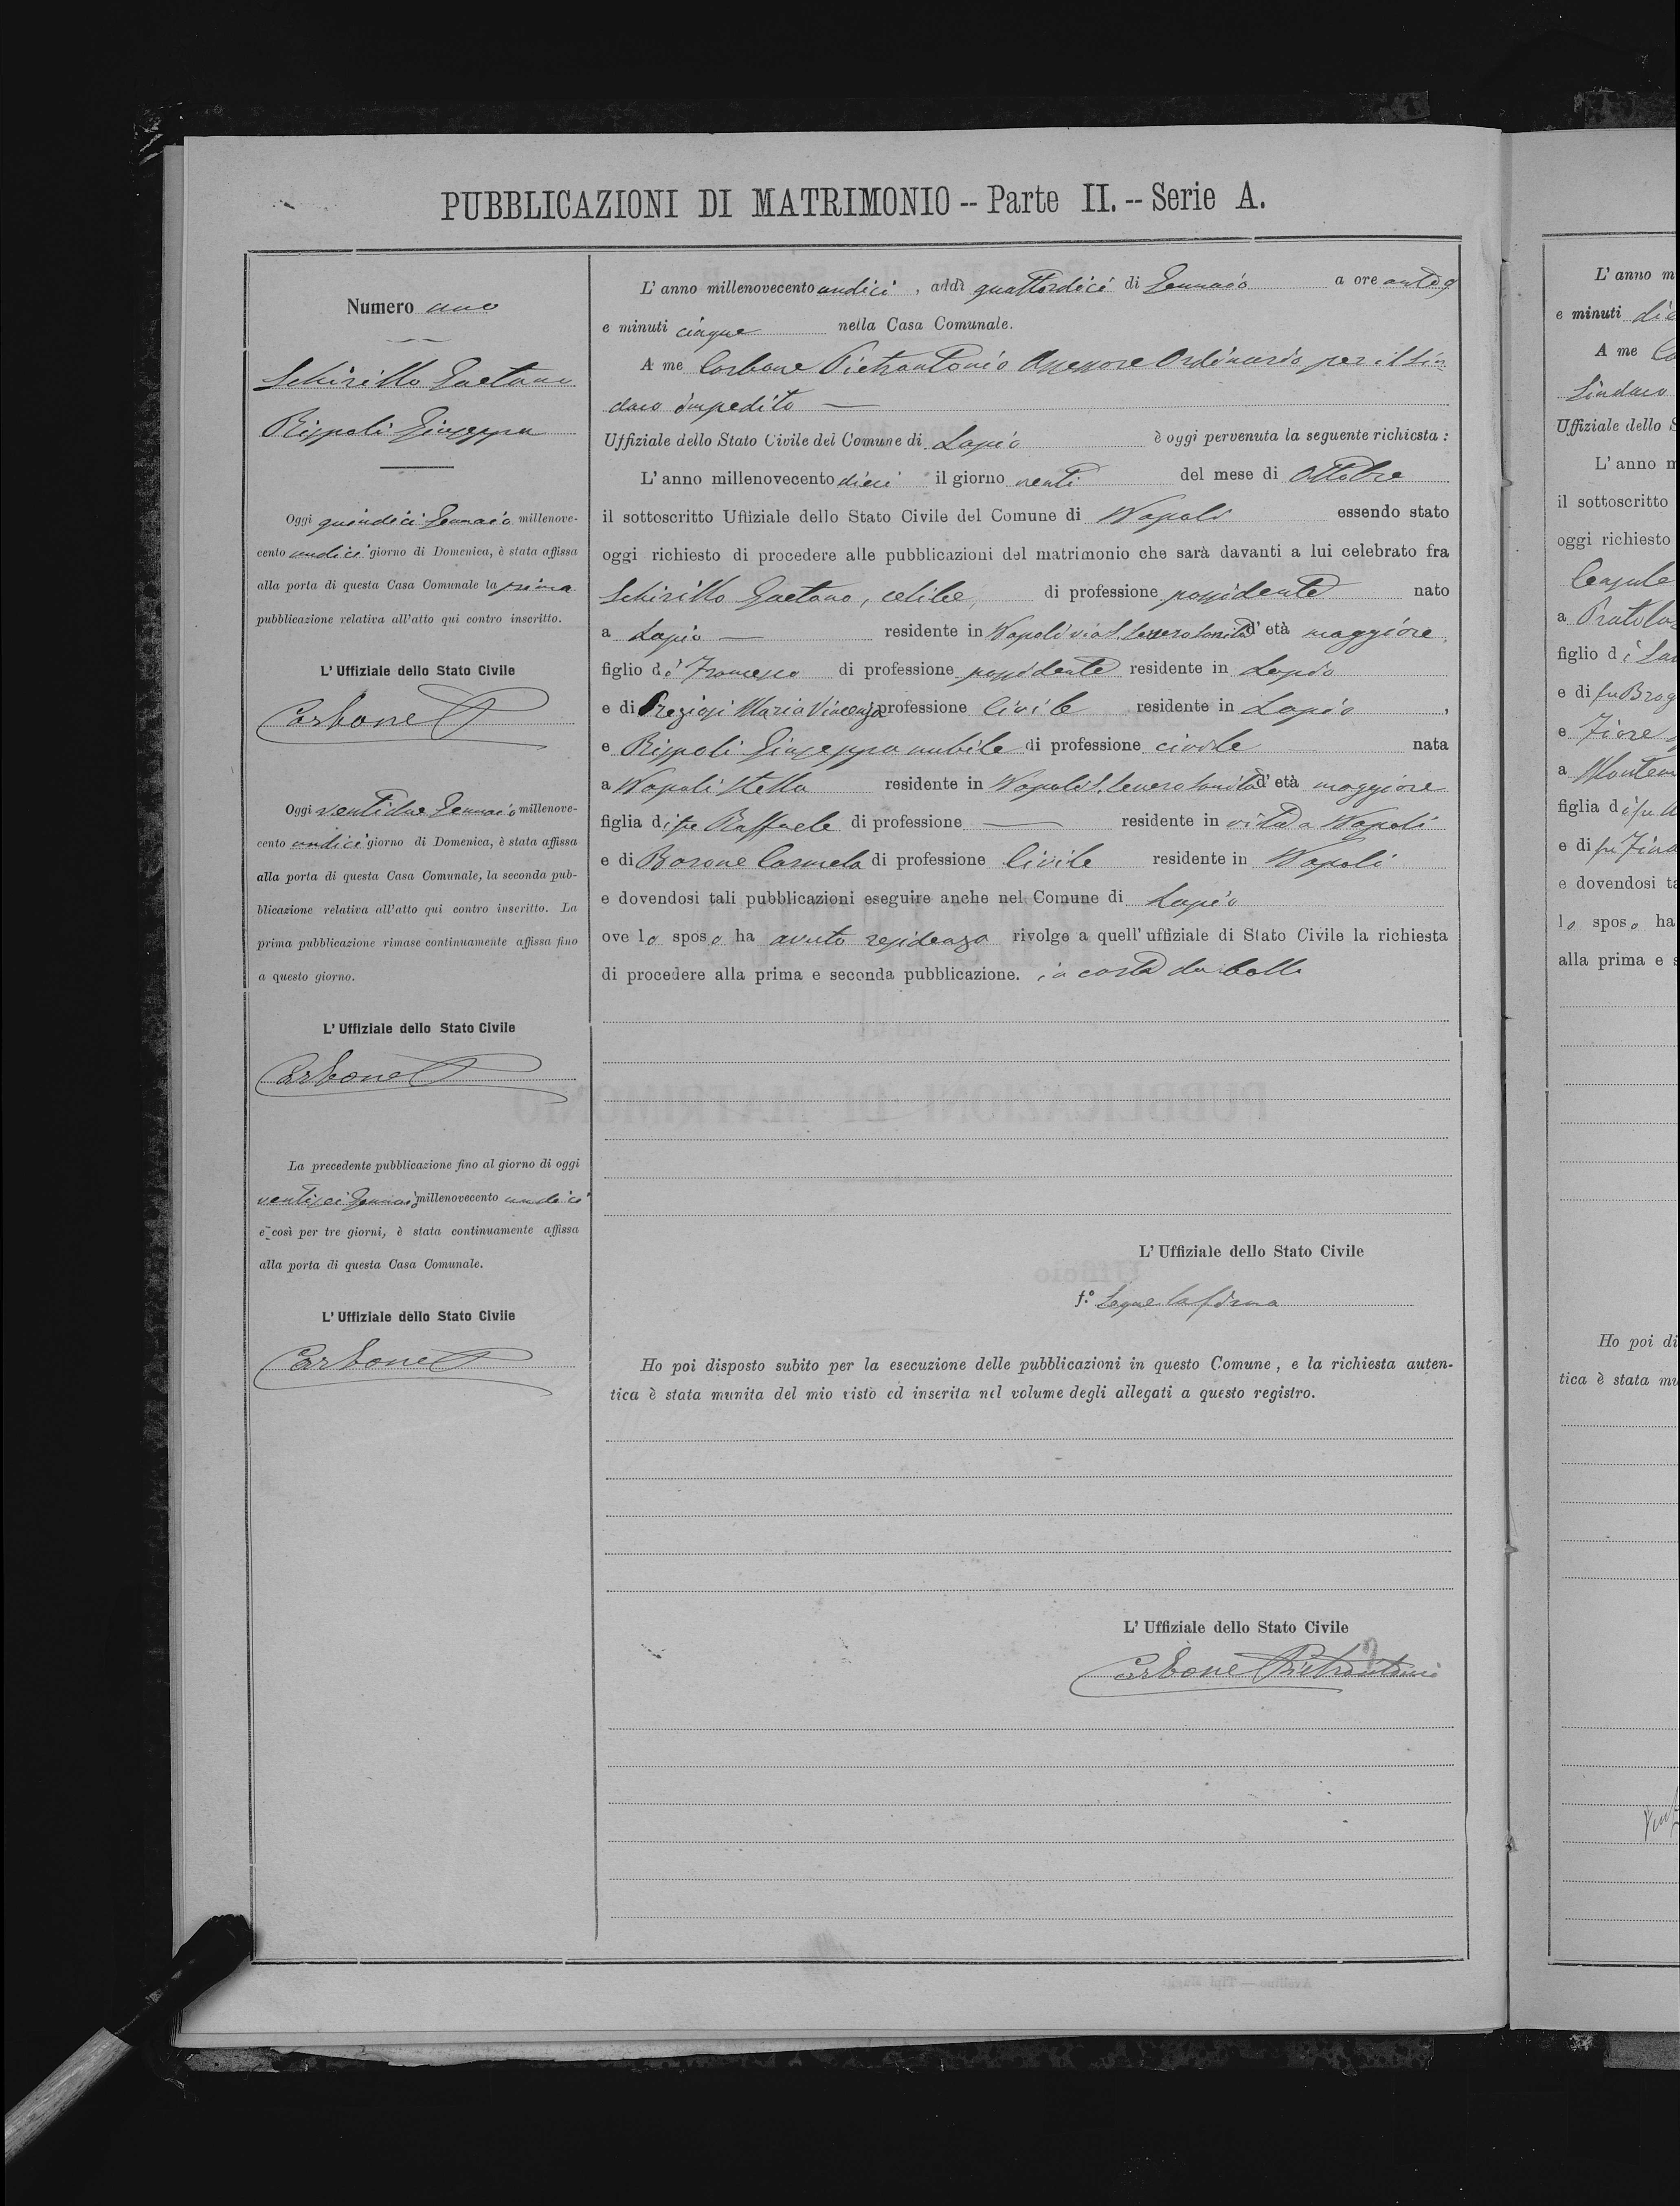 PUBBLICAZIONI DI MATRIMONIO -- Parte II. -- Serie A.
Numero uno
Schirillo Gaetano
Rispoli Giuseppa
Oggi quindici Gennaio millenove-
cento undici giorno di Domenica, è stata affissa
alla porta di questa Casa Comunale la prima
pubblicazione relativa all'atto qui contro inscritto.
L'Uffiziale dello Stato Civile
Carbone
Oggi ventidue Gennaio millenove-
cento undici giorno di Domenica, è stata affissa
alla porta di questa Casa Comunale, la seconda pub-
blicazione relativa all'atto qui contro inscritto. La
prima pubblicazione rimase continuamente affissa fino
a questo giorno.
L'Uffiziale dello Stato Civile
Carbone
La precedente pubblicazione fino al giorno di oggi
ventisei Gennaio millenovecento undici
e così per tre giorni, è stata continuamente affissa
alla porta di questa Casa Comunale.
L'Uffiziale dello Stato Civile
Carbone
L'anno millenovecento undici, addì quattordici di Gennaio a ore ant 9
e minuti cinque nella Casa Comunale.
A me Carbone Pietrantonio Assessore Ordinario per il Sin-
daco impedito
Uffiziale dello Stato Civile del Comune di Lapio è oggi pervenuta la seguente richiesta:
L'anno millenovecento dieci il giorno venti del mese di Ottobre
il sottoscritto Uffiziale dello Stato Civile del Comune di Napoli essendo stato
oggi richiesto di procedere alle pubblicazioni del matrimonio che sarà davanti a lui celebrato fra
Schirillo Gaetano, celibe, di professione possidente nato
a Lapio residente in Napoli via S. Severo Sanità d'età maggiore,
figlio di Francesco di professione possidente residente in Lapio
e di Preziosi Maria Vincenza professione Civile residente in Lapio,
e Rispoli Giuseppa nubile di professione civile nata
a Napoli Stella residente in Napoli S. Severo Sanità d'età maggiore
figlia di fu Raffaele di professione residente in vita a Napoli
e di Barone Carmela di professione Civile residente in Napoli
e dovendosi tali pubblicazioni eseguire anche nel Comune di Lapio
ove lo sposo ha avuto residenza rivolge a quell'uffiziale di Stato Civile la richiesta
di procedere alla prima e seconda pubblicazione. in carta da bollo
L'Uffiziale dello Stato Civile
f.º Segue la firma
Ho poi disposto subito per la esecuzione delle pubblicazioni in questo Comune, e la richiesta auten-
tica è stata munita del mio visto ed inserita nel volume degli allegati a questo registro.
L'Uffiziale dello Stato Civile
Carbone Pietrantonio
L'anno m
e minuti
A me
Sindaco
Uffiziale dello S
L'anno m
il sottoscritto
oggi richiesto
a Pratola
figlio di
e di fu
e Fiore
a
figlia di fu
e di fu
e dovendosi ta
lo sposo ha
alla prima e s
Ho poi di
tica è stata mu